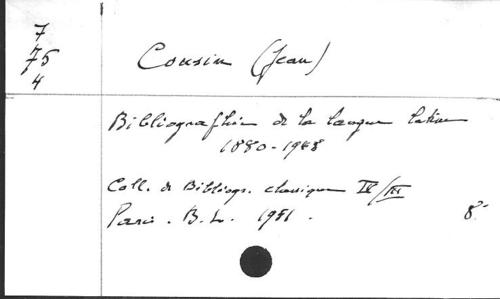 7
75
4
Cousin (Jean)
Bibliographie de la langue latine
1880-1948
Coll. de Bibliogr. classique IX/III
Paris. B. L. 1951.
8°